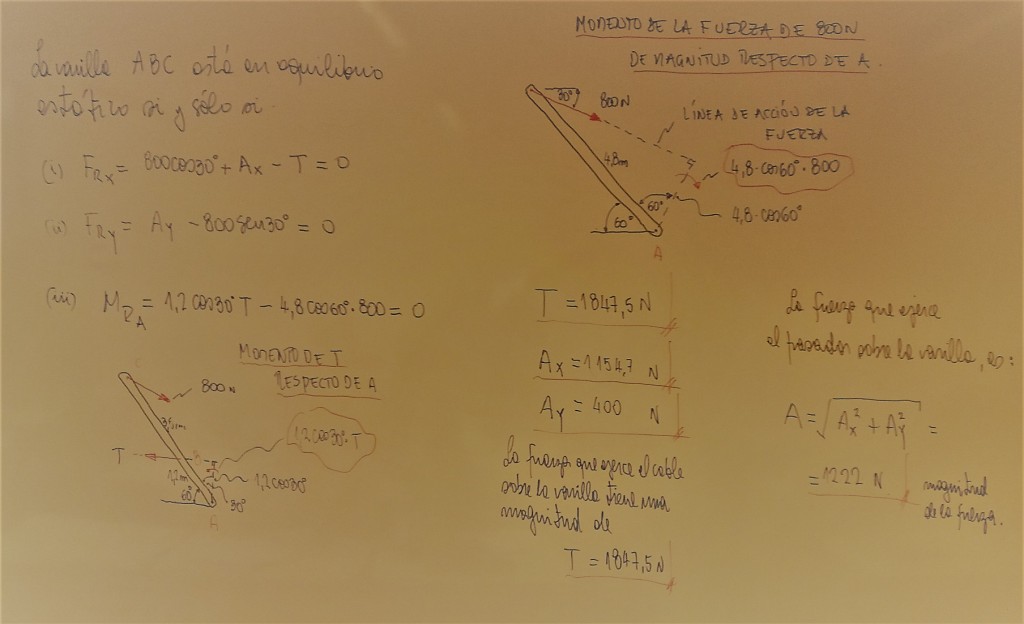 La varilla ABC está en equilibrio
estático si y sólo si
(i) F_Rx = 800cos30° + Ax - T = 0
(ii) F_Ry = Ay - 800sen30° = 0
(iii) M_RA = 1,2cos30°T - 4,8cos60°·800 = 0
MOMENTO DE T
RESPECTO DE A
C
800N
T
B
1,2cos30°·T
1,2m
1,2cos30°
60°
30°
A
MOMENTO DE LA FUERZA DE 800N
DE MAGNITUD RESPECTO DE A.
30°
800N
LÍNEA DE ACCIÓN DE LA
FUERZA
4,8m
4,8·cos60°·800
60°
4,8·cos60°
60°
A
T = 1847,5 N
Ax = 1154,7 N
Ay = 400 N
La fuerza que ejerce el cable
sobre la varilla tiene una
magnitud de
T = 1847,5 N
La fuerza que ejerce
el pasador sobre la varilla, es:
A = √(Ax² + Ay²) =
= 1222 N
magnitud
de la fuerza.